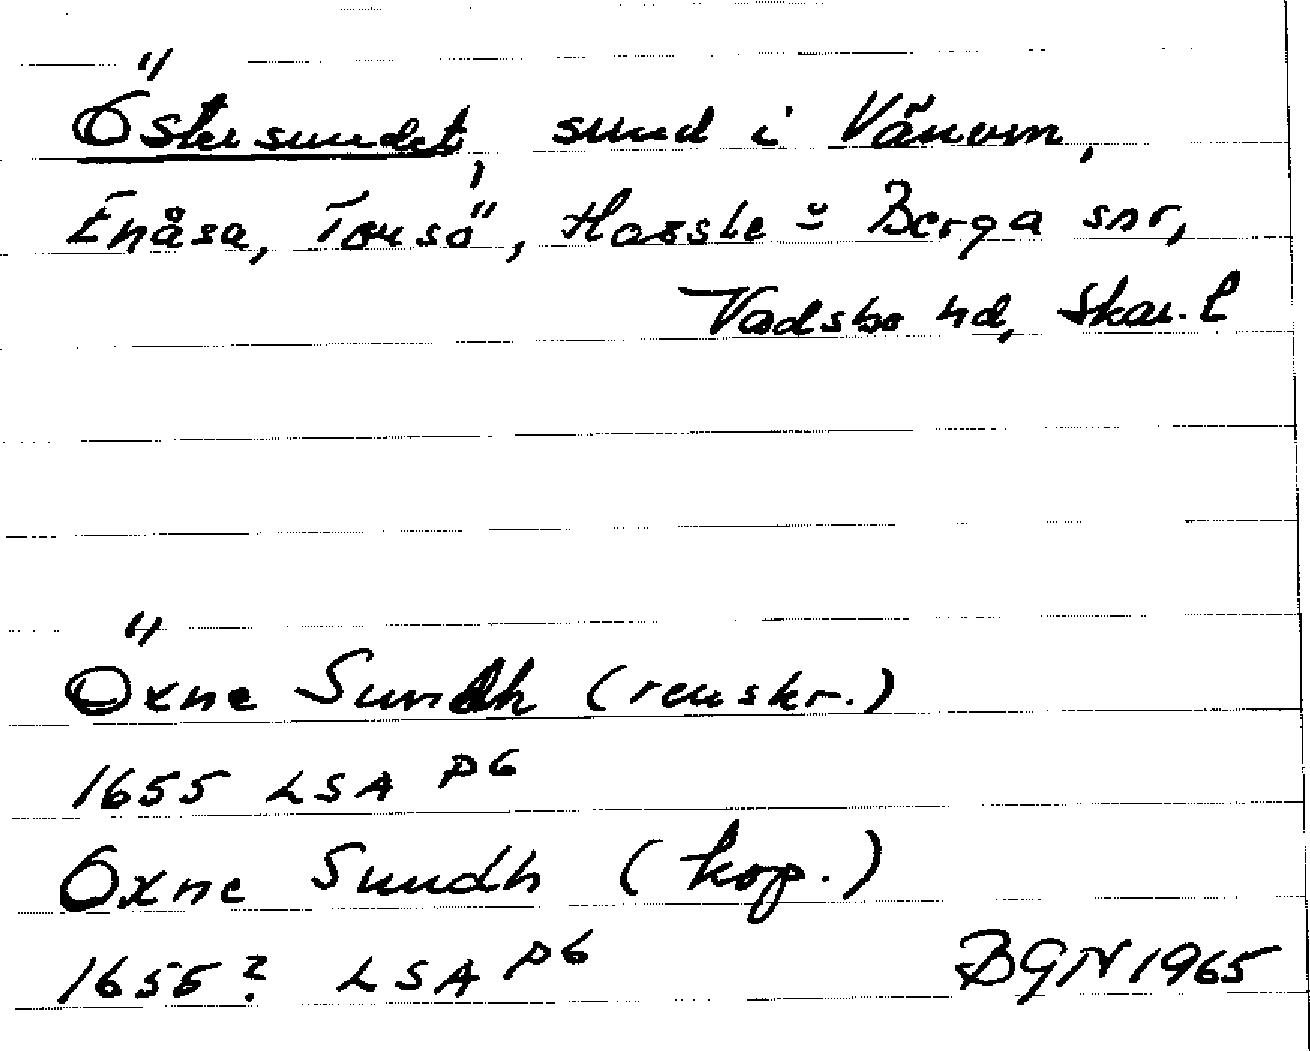 Östersundet, sund i Vänern,
Enåsa, Torsö, Hassle o Berga snr,
Vadsbo hd, Skar. l
Öxne Sundh (renskr.)
1655 LSA P6
Oxne Sundh (kop.)
1655? LSA P6
BGN 1965